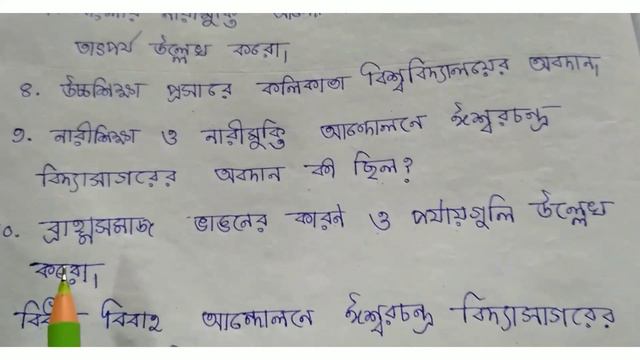 তাৎপর্য উল্লেখ করো।
৪. উচ্চশিক্ষা প্রসারে কলিকাতা বিশ্ববিদ্যালয়ের অবদান।
৭. নারীশিক্ষা ও নারীমুক্তি আন্দোলনে ঈশ্বরচন্দ্র
বিদ্যাসাগরের অবদান কী ছিল?
০. ব্রাহ্মসমাজ ভাঙনের কারণ ও পর্যায়গুলি উল্লেখ
করো।
বিবাহ আন্দোলনে ঈশ্বরচন্দ্র বিদ্যাসাগরের